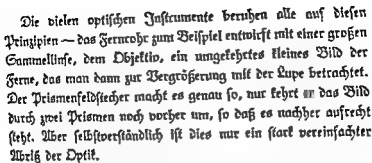 Die vielen optischen Instrumente beruhen alle auf diesen
Prinzipien — das Fernrohr zum Beispiel entwirft mit einer großen
Sammellinse, dem Objektiv, ein umgekehrtes kleines Bild der
Ferne, das man dann zur Vergrößerung mit der Lupe betrachtet.
Der Prismenfeldstecher macht es genau so, nur kehrt er das Bild
durch zwei Prismen noch vorher um, so daß es nachher aufrecht
steht. Aber selbstverständlich ist dies nur ein stark vereinfachter
Abriß der Optik.